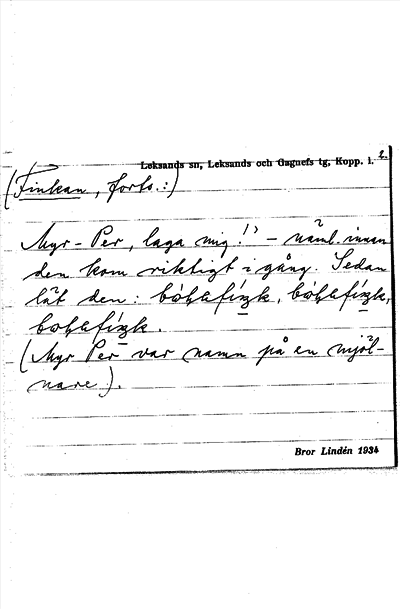 2.
Leksands sn, Leksands och Gagnefs tg, Kopp. l.
(Finkan, forts.:)
Myr-Per, laga mig!") – näml. innan
den kom riktigt i gång. Sedan
lät den:
(Myr Per var namn på en mjöl-
nare).
Bror Lindén 1934